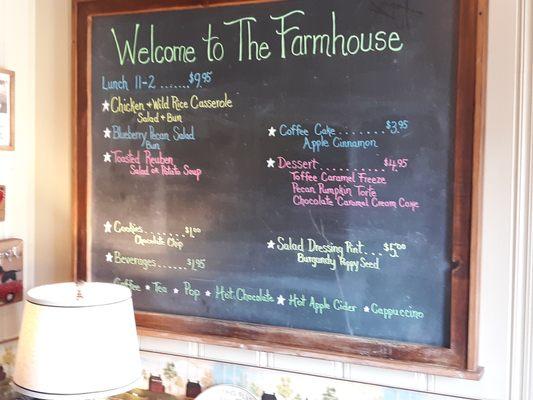 Welcome to The Farmhouse
Lunch 11-2 ....... $9.95
Chicken + Wild Rice Casserole
Salad + Bun
Blueberry Pecan Salad
Bun
Toasted Reuben
Salad or Potato Soup
Cookies........ $1.00
Chocolate Chip
Beverages ...... $1.95
Coffee Cake ........ $3.95
Apple Cinnamon
Dessert ............ $4.95
Toffee Caramel Freeze
Pecan Pumpkin Torte
Chocolate Caramel Cream Cake
Salad Dressing Pint .... $5.00
Burgundy Poppy Seed
Coffee Tea Pop Hot Chocolate Hot Apple Cider Cappuccino